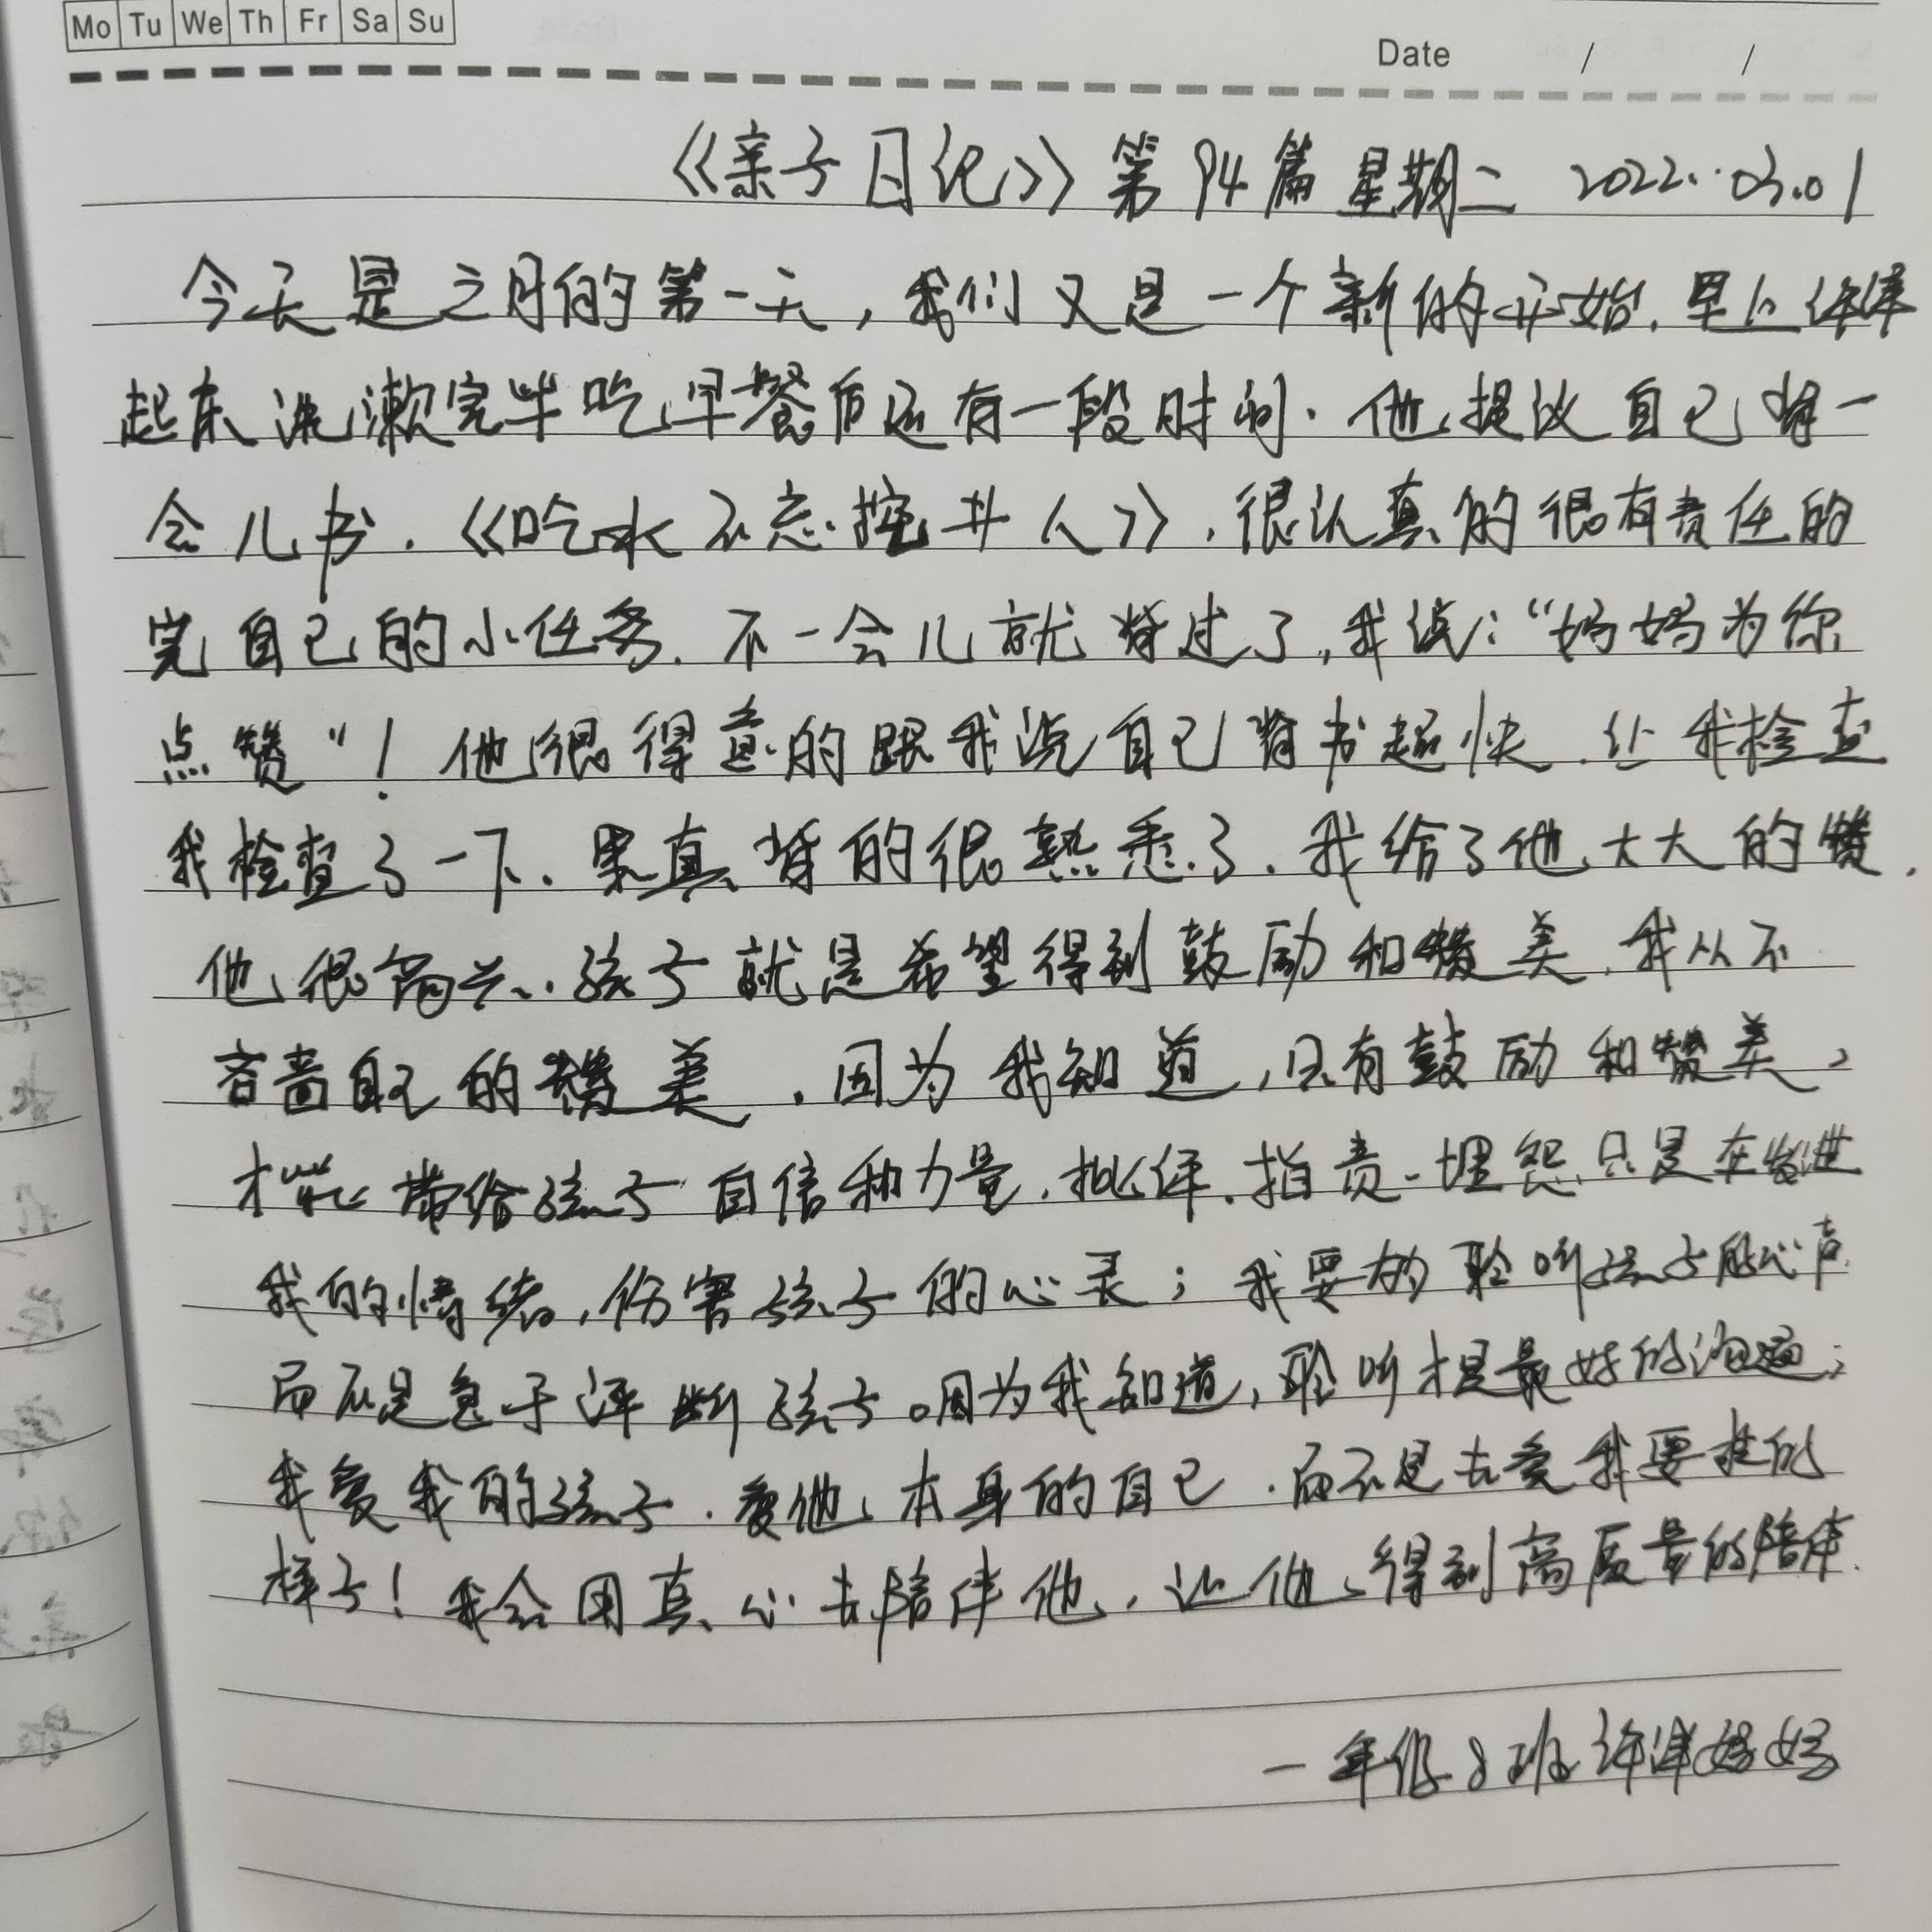 Mo Tu We Th Fr Sa Su
Date / /
《亲子日记》第94篇 星期二 2022.03.01
今天是三月的第一天，我们又是一个新的开始.早上
起床洗漱完毕吃早餐后还有一段时间.他提议自己背一
会儿书.《吃水不忘挖井人》，很认真的很有责任的
完自己的小任务.不一会儿就背过了，我说："妈妈为你
点赞"！他很得意的跟我说自己背书超快.让我检查
我检查了一下.果真背的很熟悉了.我给了他大大的赞，
他很高兴.孩子就是希望得到鼓励和赞美.我从不
吝啬自己的赞美，因为我知道，只有鼓励和赞美，
才能带给孩子自信和力量.批评.指责.埋怨只是在发泄
我的情绪，伤害孩子的心灵；我要的聆听孩子的心声
而不是急于评断孩子。因为我知道，聆听才是最好的沟通；
我爱我的孩子.爱他本身的自己.而不是去爱我要求的
样子！我会用真心去陪伴他，让他得到高质量的陪伴.
一年级8班 妈妈